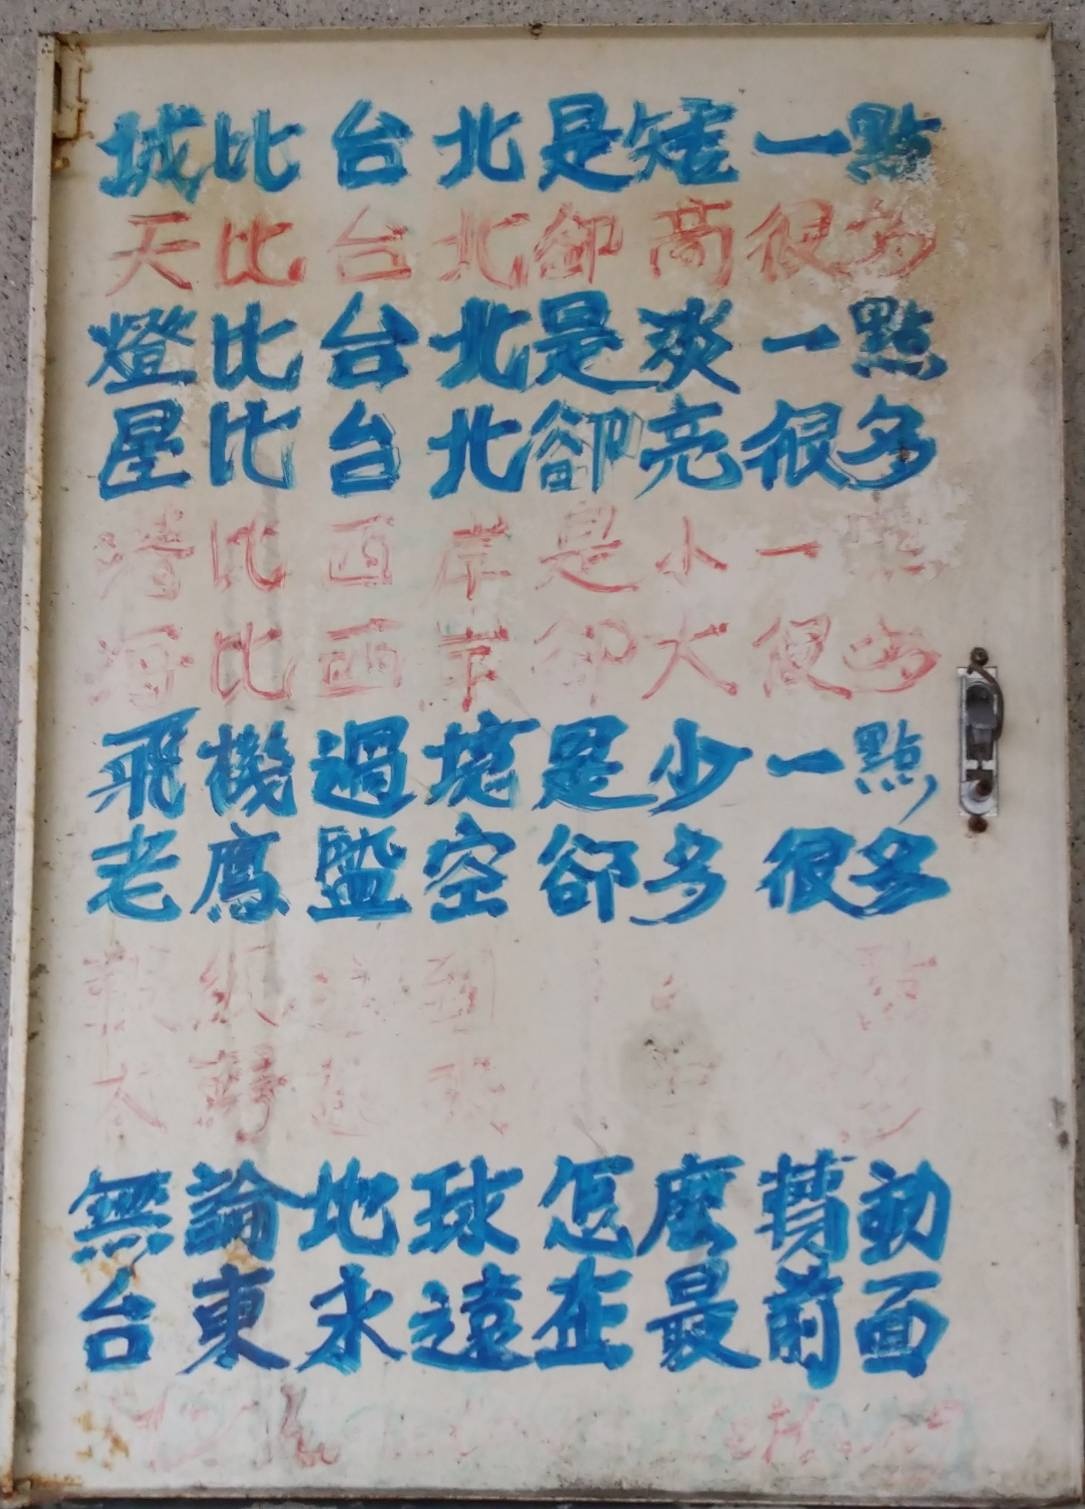 城比台北是矮一點
天比台北卻高很多
燈比台北是淡一點
星比台北卻亮很多
港比西岸是小一點
海比西岸卻大很多
飛機過境是少一點
老鷹盤空卻多很多
報紙 到 點
太
無論地球怎麼轉動
台東永遠在最前面